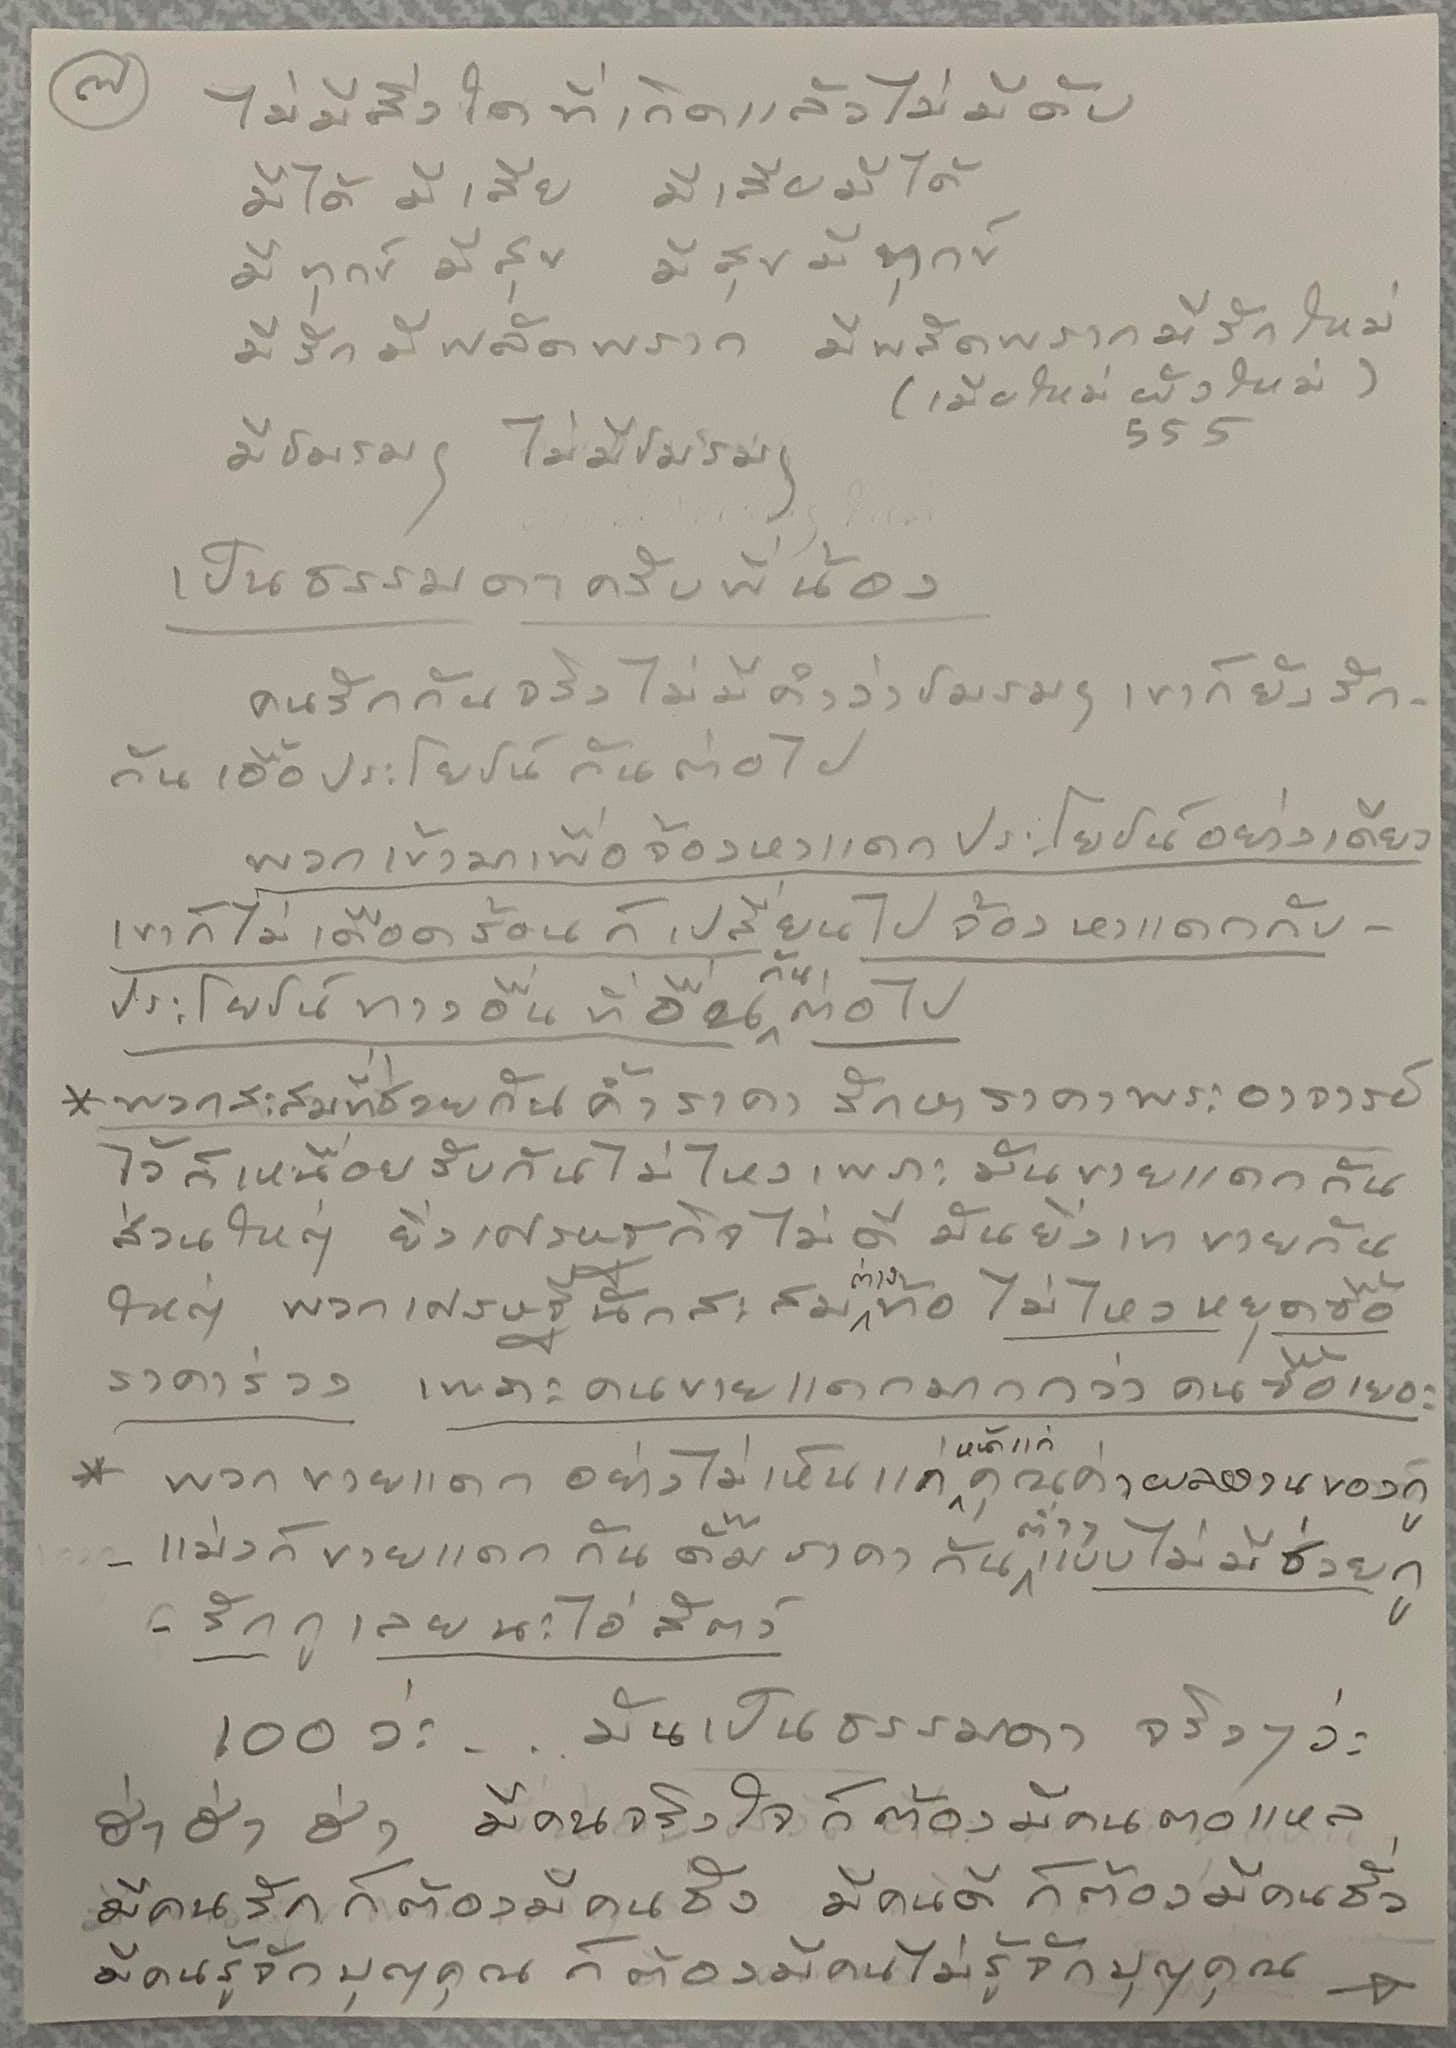 ๗
ไม่มีสิ่งใดที่เกิดแล้วไม่มีดับ
มีได้ มีเสีย มีเสียมีได้
มีทุกข์ มีสุข มีสุขมีทุกข์
มีรักมีพลัดพราก มีพรัดพรากมีรักใหม่
(เมียใหม่ ผัวใหม่)
555
มีชมรมๆ ไม่มีชมรมๆ
เป็นธรรมดาครับพี่น้อง
คนรักกันจริงไม่มีคำว่าชมรมๆ เขาก็ยังรัก-
กันเอื้อประโยชน์กันต่อไป
พวกเข้ามาเพื่อจ้องหาแดกประโยชน์อย่างเดียว
เขาก็ไม่เดือดร้อน ก็เปลี่ยนไปจ้องหาแดกกับ-
ประโยชน์ทางอื่นที่อื่นกันต่อไป
*พวกสะสมที่ช่วยกันค้ำราคา รักษาราคาพระอาจารย์
ไว้ก็เหนื่อยรับกันไม่ไหวเพราะมันขายแดกกัน
ส่วนใหญ่ ยิ่งเศรษฐกิจไม่ดีมันยิ่งเทขายกัน
ใหญ่ พวกเศรษฐีนักสะสมต่างท้อ ไม่ไหวหยุดซื้อ
ราคาร่วง เพราะคนขายแดกมากกว่าคนซื้อเยอะ
* พวกขายแดก อย่างไม่เห็นแก่หน้าแก่คุณค่าผลงานของกู
- แม่งก็ขายแดกกันดัมราคากันต่ำๆแบบไม่มีช่วยกู
- รักกูเลยนะไอ่สัตว์
100 ว่ะ... มันเป็นธรรมดา จริงๆว่ะ
ฮ่า ฮ่า ฮ่า มีคนจริงใจก็ต้องมีคนตอแหล
มีคนรักก็ต้องมีคนชัง มีคนดีก็ต้องมีคนชั่ว
มีคนรู้จักบุญคุณ ก็ต้องมีคนไม่รู้จักบุญคุณ →